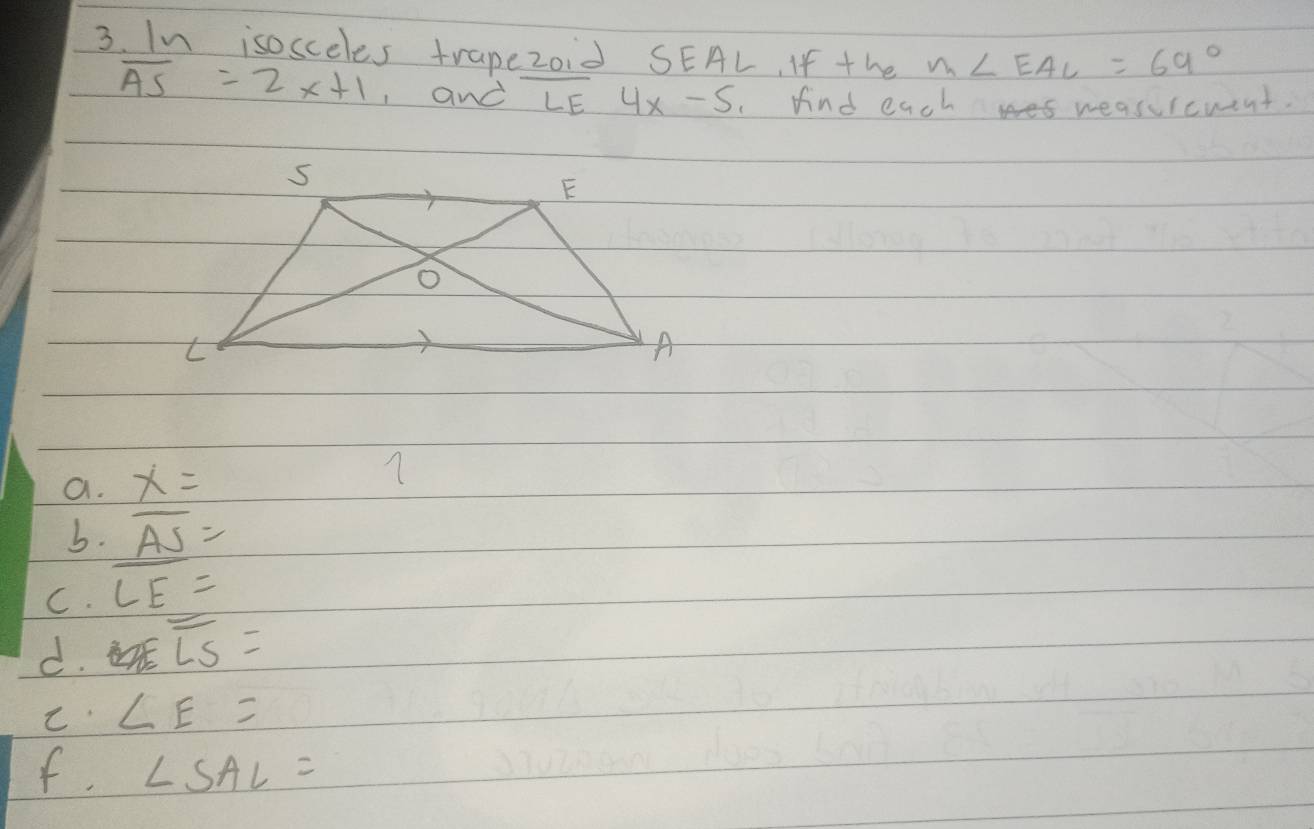 3. In isosceles trapezoid SEAL, If the m∠EAL = 69°
AS = 2x+1, and LE 4x-5. find each measurement.
S
E
O
L
A
a. x =
b. AS =
c. LE =
d. LS =
e. ∠E =
f. ∠SAL =